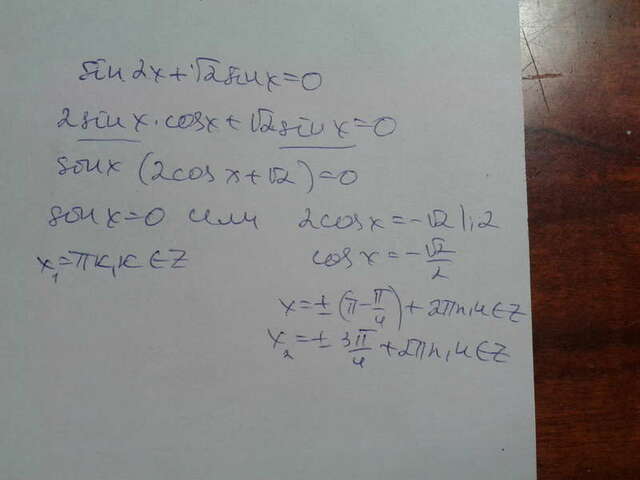 sin 2x + √2 sin x = 0
2 sin x · cos x + √2 sin x = 0
sin x (2 cos x + √2) = 0
sin x = 0 или 2 cos x = -√2 |:2
x₁ = πk, k ∈ Z cos x = -√2/2
x = ± (π - π/4) + 2πn, n ∈ Z
x₂ = ± 3π/4 + 2πn, n ∈ Z